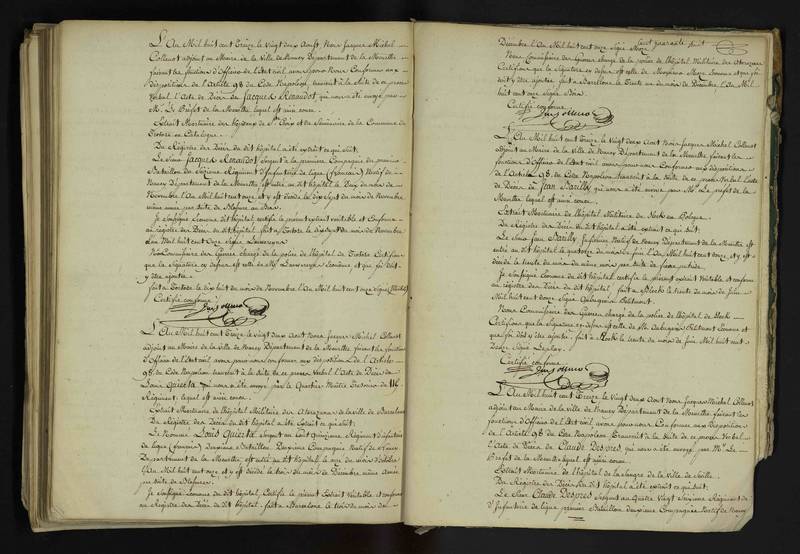 L'An Mil huit cent Treize le vingt deux Aoust Nous Jacques Michel
Collenot adjoint au Maire de la Ville de Nancy Département de la Meurthe
faisant les fonctions d'Officier de l'Etat civil avons
disposition de l'Article 98 du Code Napoléon, transcrit à la suite de ce procès
Verbal l'Acte de Décès de Jacques Renaudot qui nous a été envoyé par
Mr. Le Préfet de la Meurthe lequel est ainsi conçu.
Extrait Mortuaire des hôpitaux de Ste Croix et de Séminaire de la Commune de
Tortose en Catalogne.
Du Registre des Décès du dit hôpital a été extrait ce qui suit.
Le Sieur Jacques Renaudot Sergent à la première Compagnie du premier
Bataillon du Régiment d'Infanterie de ligne (française) Natif de
Nancy Département de la Meurthe est entré au dit hôpital le du mois de
Novembre l'An Mil huit cent onze et y est décédé le dix sept du mois de Novembre
même année par suite de
Je Soussigné Econome du dit hôpital certifie le présent extrait véritable et conforme
au régistre des Décès du dit hôpital, fait à Tortose le dix sept du mois de Novembre
l'an Mil huit cent onze Signé
Nous Commissaire des Guerres chargé de la police de l'hôpital de Tortose Certifions
que la Signature ci dessus est celle de Mr. Econome et que foi doit
y être ajoutée.
fait à Tortose le dix huit du mois de Novembre l'An Mil huit cent onze
Certifié conforme
L'An Mil huit cent Treize le vingt deux Aout Nous Jacques Michel Collenot
adjoint au Maire de la Ville de Nancy Département de la Meurthe faisant les fonctions
d'Officier de l'Etat civil avons pour nous conformer aux dispositions de l'Article
98 du Code Napoléon transcrit à la suite de ce procès Verbal l'Acte de Décès de
Louis Quierta, qui nous a été envoyé par le Quartier Maître Trésorier du 116
Régiment lequel est ainsi conçu.
Extrait Mortuaire de l'hôpital Militaire des Atarazanas de la ville de Barcelone
Du Registre des Décès du dit hôpital a été extrait ce qui suit:
Le Nommé Louis Quierta, au Cent Quinzieme, Régiment d'infanterie
de ligne (française) Deuxième Bataillon Deuxième Compagnie Natif de Nancy
Département de la Meurthe, est entré au dit hôpital le du mois d'Octobre
l'An Mil huit cent onze et y est décédé le trois du mois de Décembre même Année
par suite de Blessures.
Je Soussigné Econome du dit hôpital, Certifie le présent Extrait Véritable et conforme
au Registre des Décès du dit hôpital. fait à Barcelone le trois du mois de
cent quarante huit
Décembre l'An Mil huit cent onze Signé
Nous Commissaire des Guerres chargé de la police de l'hôpital Militaire des Atarazanas
Certifions que la Signature ci dessus est celle de Monsieur Econome et que foi
doit y être ajoutée fait à Barcelone le du mois de Décembre l'An Mil
huit cent onze Signé
Certifié conforme
L'An Mil huit cent Treize le vingt deux Aout Nous Jacques Michel Collenot
adjoint au Maire de la Ville de Nancy Département de la Meurthe faisant les
fonctions d'Officier de l'Etat civil avons pour nous conformer aux dispositions
de l'Article 98 du Code Napoléon transcrit à la suite de ce procès Verbal l'acte
de Décès de Jean qui nous a été envoyé par Mr. Le préfet de la
Meurthe lequel est ainsi conçu.
Extrait Mortuaire de l'hôpital Militaire de en
Du Registre des Décès du dit hôpital a été extrait ce qui suit:
Le Sieur Jean Infirmier Natif de Nancy Département de la Meurthe est
entré au dit hôpital le quatorze du mois de Juin l'An Mil huit cent douze, et y est
décédé le trente du mois du même mois par suite de fièvre putride.
Je Soussigné Econome du dit hôpital certifie le présent extrait véritable et conforme
au régistre des Décès du dit hôpital, fait à le trente du mois de Juin
Mil huit cent douze Signé
Nous Commissaire des Guerres chargé de la police de l'hôpital de
Certifions que la signature ci dessus est celle de Mr. Econome et
que foi doit y être ajoutée, fait à le trente du mois de Juin Mil huit cent
douze, Signé
Certifié conforme
L'An Mil huit cent Treize le vingt deux Aout Nous Jacques Michel Collenot
adjoint au Maire de la Ville de Nancy Département de la Meurthe faisant les
fonctions d'Officier de l'Etat civil avons pour nous conformer aux disposition
de l'Article 98 du Code Napoléon transcrit à la suite de ce procès Verbal
l'Acte de Décès de Claude Despres qui nous a été envoyé par Mr. Le
Préfet de la Meurthe lequel est ainsi conçu.
Extrait Mortuaire de l'hôpital de la Sangre de la ville de Seville.
Du Registre des Décès du dit hôpital a été extrait ce qui suit:
Le Sieur Claude Despres Sergent au Quatre Vingt Seizième Régiment
d'Infanterie de ligne premier Bataillon Deuxième Compagnie Natif de Nancy